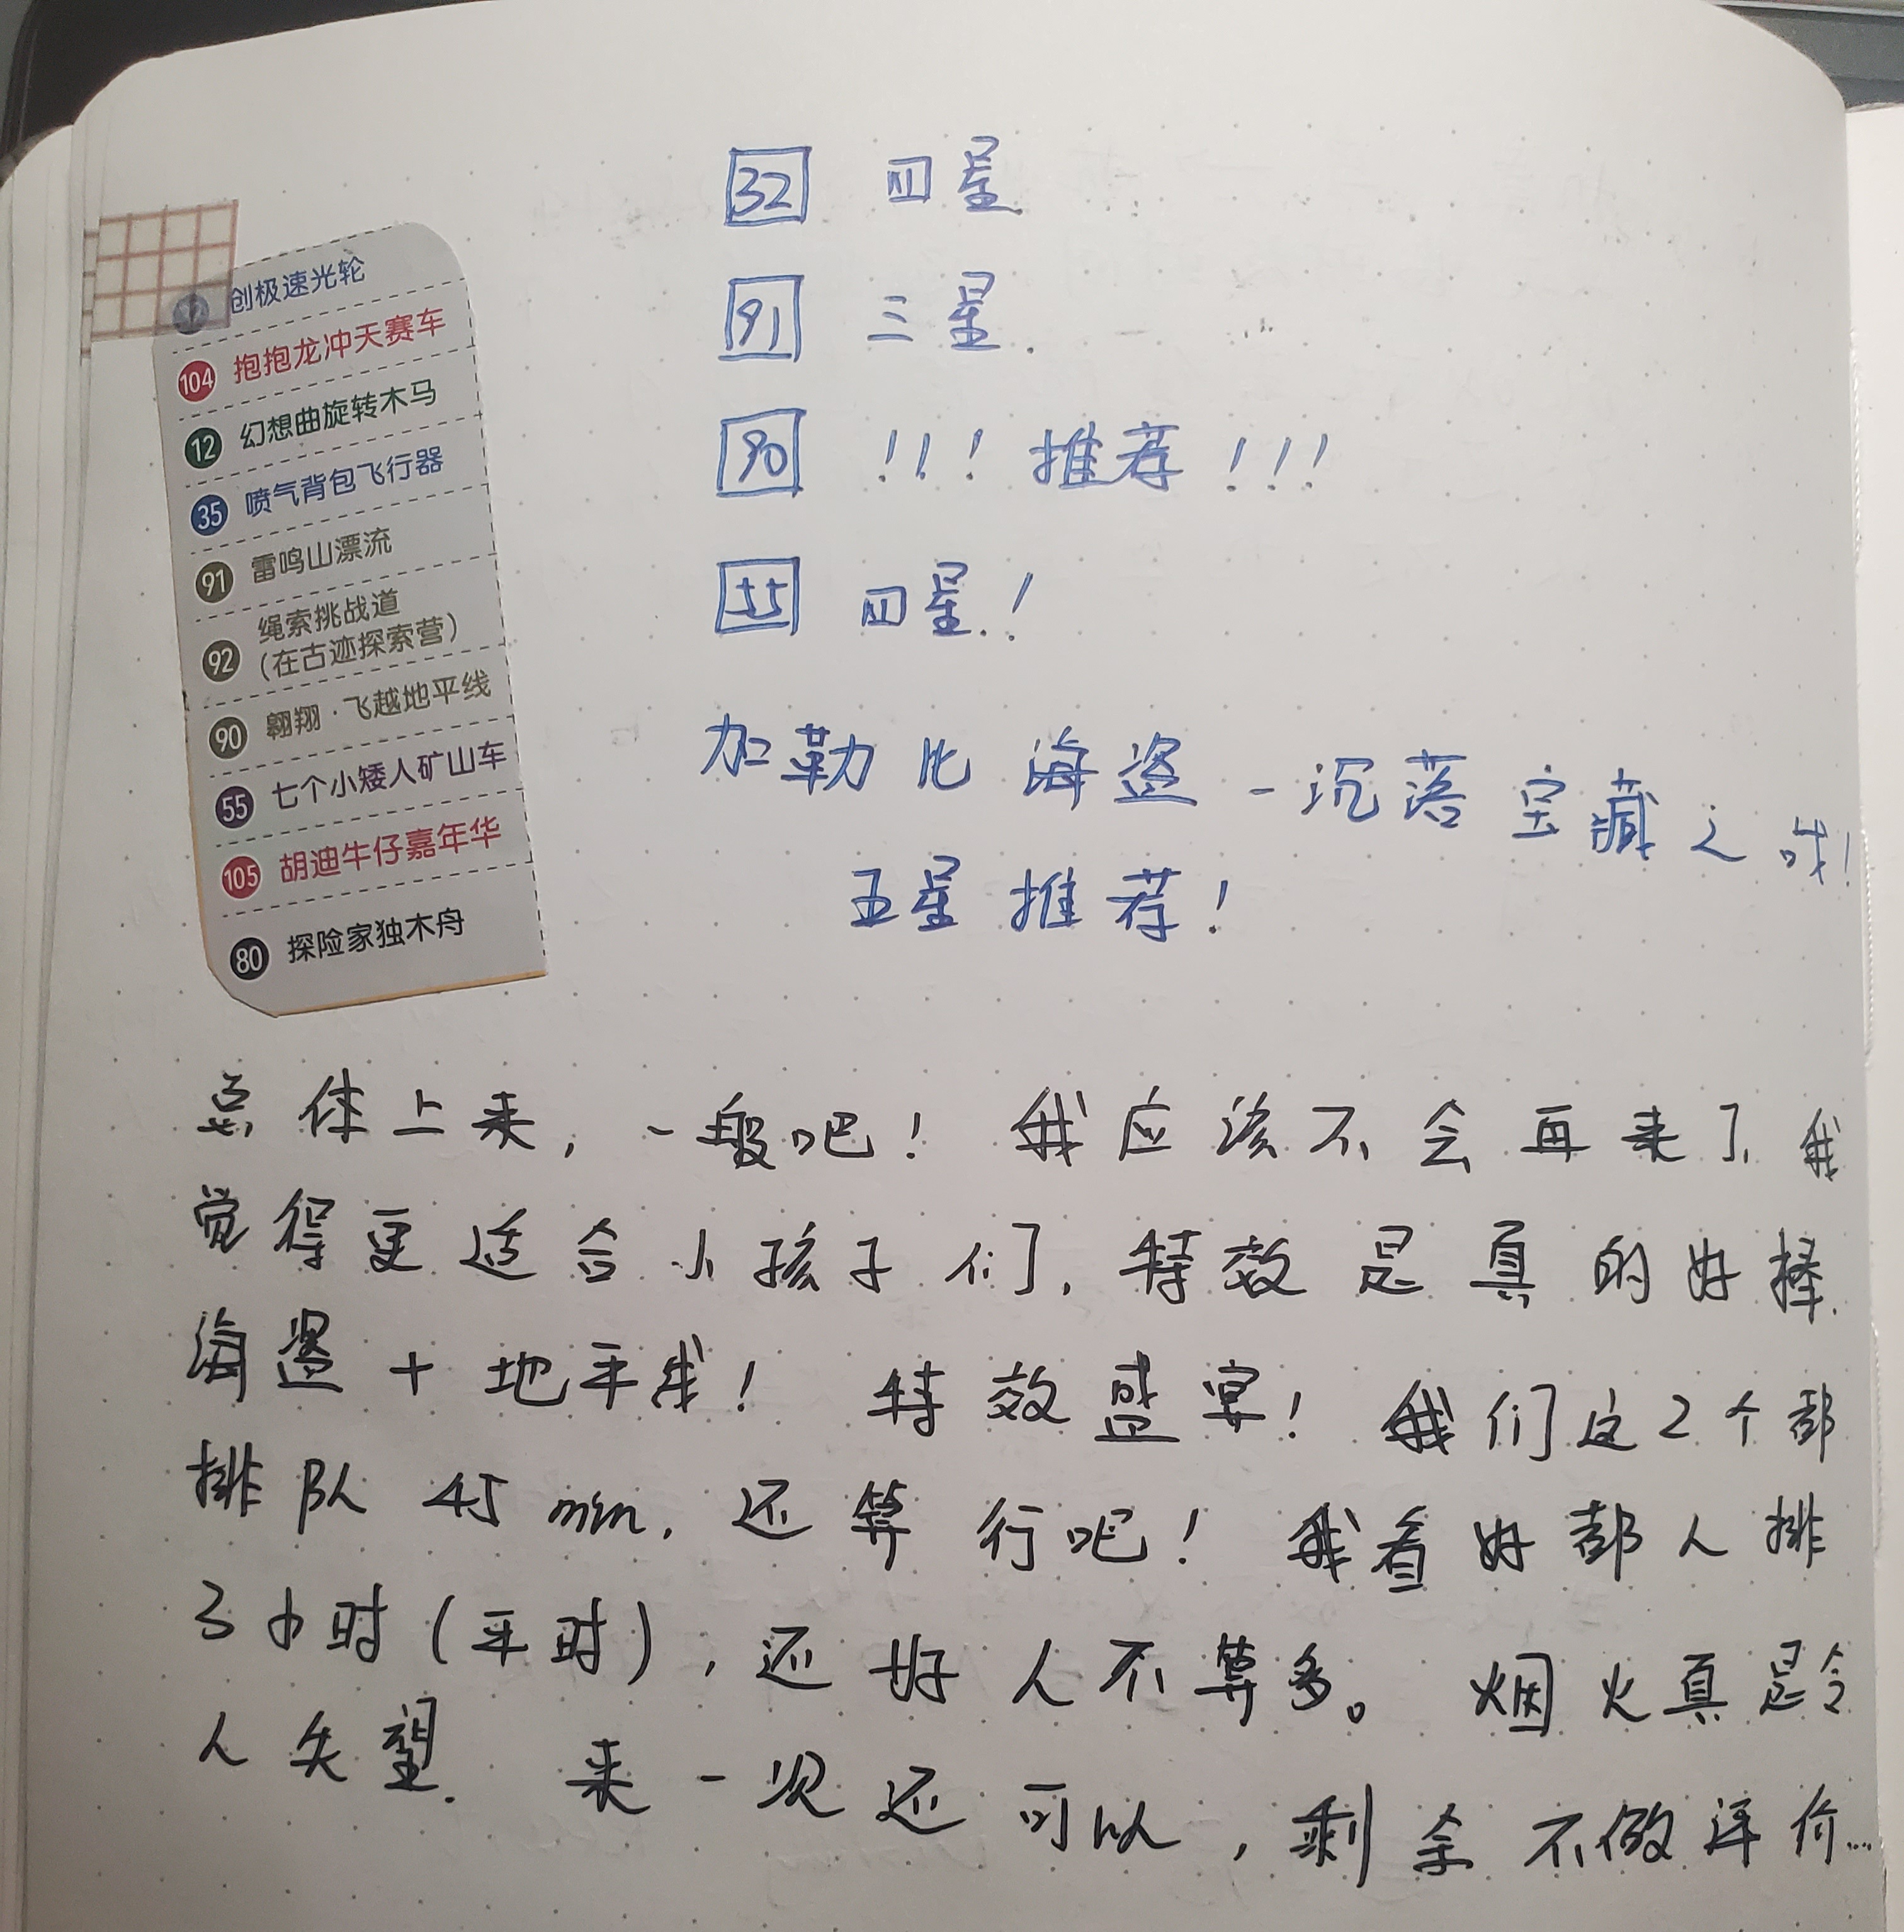 创极速光轮
104 抱抱龙冲天赛车
12 幻想曲旋转木马
35 喷气背包飞行器
91 雷鸣山漂流
92 绳索挑战道
(在古迹探索营)
90 翱翔·飞越地平线
55 七个小矮人矿山车
105 胡迪牛仔嘉年华
80 探险家独木舟
32 四星
91 三星.
90 !!! 推荐!!!
55 四星!
加勒比海盗-沉落宝藏之战!
五星推荐!
总体上来,一般吧! 我应该不会再来了,我
觉得更适合小孩子们,特效是真的好棒.
海盗+地平线! 特效盛宴! 我们这2个都
排队45min,还算行吧! 我看好都人排
3小时(平时),还好人不算多。 烟火真是令
人失望. 来一次还可以,剩余不做评价...